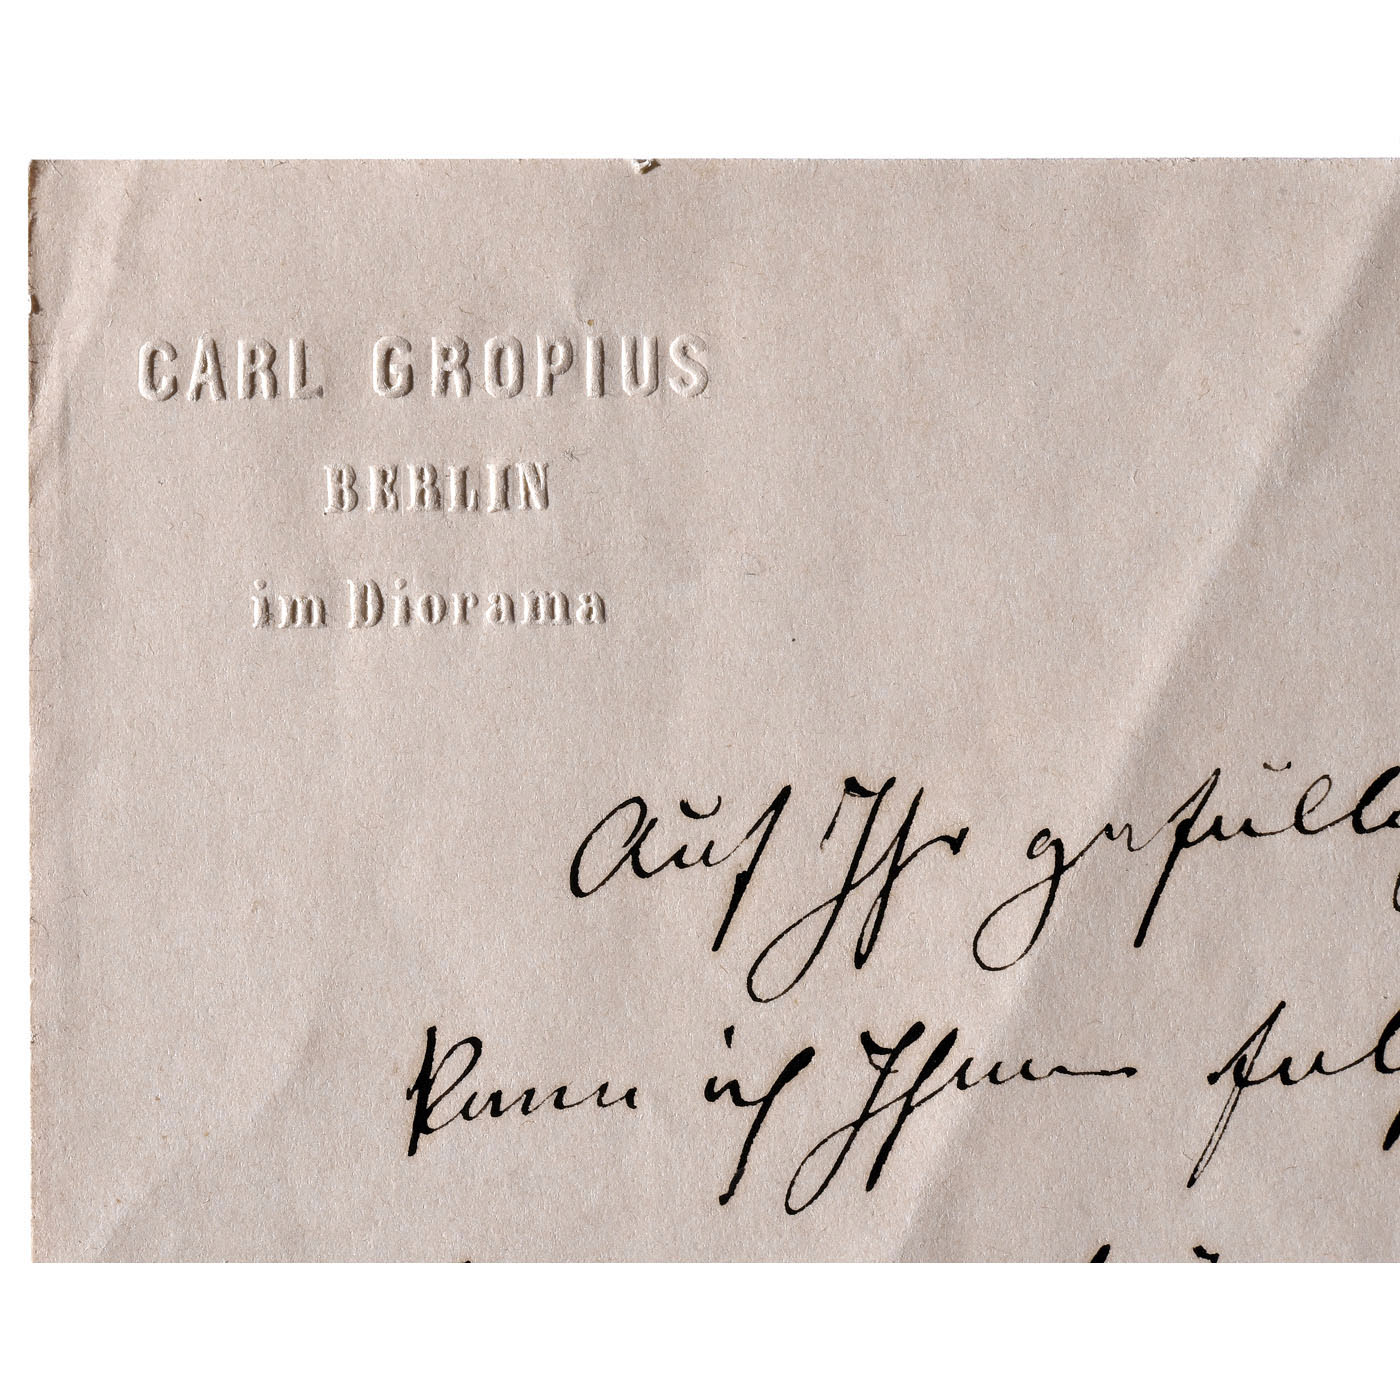 CARL GROPIUS
BERLIN
im Diorama
Auf Ihr gefüll
kann ich Ihnen